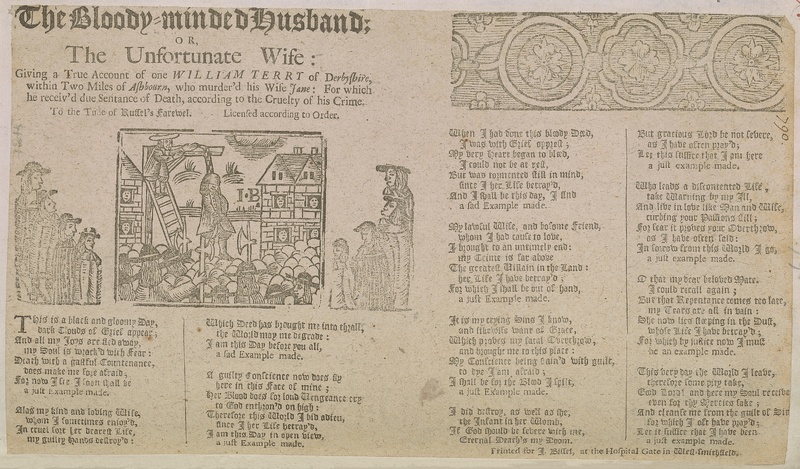 The Bloody-minded Husband;
OR,
The Unfortunate Wife:
Giving a True Account of one WILLIAM TERRY of Derbyshire,
within Two Miles of Ashbourn, who murder'd his Wife Jane: For which
he receiv'd due Sentance of Death, according to the Cruelty of his Crime.
To the Tune of Russel's Farewel. Licensed according to Order.
I·B
THis is a black and gloomy Day,
dark Clouds of Grief appear;
And all my Joys are fled away,
my Soul is wrack'd with Fear:
Death with a gastful Countenance,
does make me sore afraid;
For now I see I soon shall be
a just Example made.
Alas my kind and loving Wife,
whom I sometimes enjoy'd,
In cruel sort her dearest Life,
my guilty Hands destroy'd:
Which Deed has brought me into thrall,
the World may me degrade:
I am this Day before you all,
a sad Example made.
A guilty Conscience now does fly
here in this Face of mine;
Her Blood does for loud Vengeance cry
to God enthron'd on high:
Therefore this World I bid adieu,
since I her Life betray'd,
I am this Day in open view,
a just Example made.
When I had done this bloody Deed,
I was with Grief opprest;
My very Heart began to bleed,
I could not be at rest,
But was tormented still in mind,
since I her Life betray'd,
And I shall be this day, I find
a sad Example made.
My lawful Wife, and bosome Friend,
whom I had cause to love,
I brought to an untimely end:
my Crime is far above
The greatest Villain in the Land:
her Life I have betray'd;
For which I shall be out of hand,
a just Example made.
It is my crying Sins I know,
and likewise want of Grace,
Which proves my fatal Overthrow,
and brought me to this place:
My Conscience being pain'd with guilt,
to bye I am afraid;
I shall be for the Blood I spilt,
a just Example made.
I did destroy, as well as she,
the Infant in her Womb,
If God should be severe with me,
Eternal Death's my Doom.
But gracious Lord be not severe,
as I have often pray'd;
Let this suffice that I am here
a just example made.
Who leads a discontented Life,
take Warning by my Fall,
And live in love like Man and Wife,
curbing your Passions still:
For fear it proves your Overthrow,
as I have often said:
In sorrow from this World I go,
a just example made.
O that my dear beloved Mate,
I could recall again;
But that Repentance comes too late,
my Tears are all in vain:
She now lies sleeping in the Dust,
whose Life I have betray'd;
For which by justice now I must
be an example made.
This very day the World I leave,
therefore some pity take,
Good Lord! and here my Soul receive
even for thy Mercies sake;
And cleanse me from the guilt of Sin
for which I oft have pray'd;
Let it suffice that I have been
a just example made.
Printed for J. Bissel, at the Hospital Gate in West-smithfield.